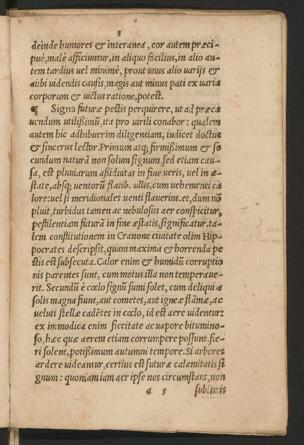 5
deinde humores & interanea, cor autem præci-
puè, malè afficiuntur, in aliquo facilius, in alio au-
tem tardius vel minimè, prout unus alio varijs &
alibi uidendis causis, magis aut minus pati ex uaria
corporum & uictus ratione, potest.
¶ Signa futuræ pestis perquirere, ut ad præca
uendum utilissimũ, ita pro uirili conabor: qualem
autem hic adhibuerim diligentiam, iudicet doctus
& syncerus lector. Primum atq; firmissimum & se
cundum naturã non solum signum, sed etiam cau-
sa, est pluuiarum assiduitas in fine ueris, uel in æ-
state, absq; uentorũ flatib. ullis, cum uehementi ca
lore: uel si meridionales uenti flauerint, et, dum nõ
pluit, turbidus tamen ac nebulosus aer conspicitur,
pestilentiam futurã in fine æstatis, significatur. ta-
lem constitutionem in Cranone ciuitate olim Hip-
pocrates descripsit, quam maxima & horrenda pe
stis est subsecuta. Calor enim & humidũ corruptio
nis parentes sunt, cum motus illa non temperaue-
rit. Secundũ è cœlo signũ sumi solet, cum deliquia
solis magna fiunt, aut cometes, aut igneæ flãmæ, ac
ueluti stellæ cadẽtes in cœlo, id est aere uidentur:
ex immodica enim siccitate ac uapore bitumino-
so, hæc quæ aerem etiam corrumpere possunt, fie-
ri solent, potissimum autumni tempore. Si arbores
ardere uideantur, certius est futuræ calamitatis si
gnum: quoniam iam aer ipse nos circumstans, non
a 5 sublimis